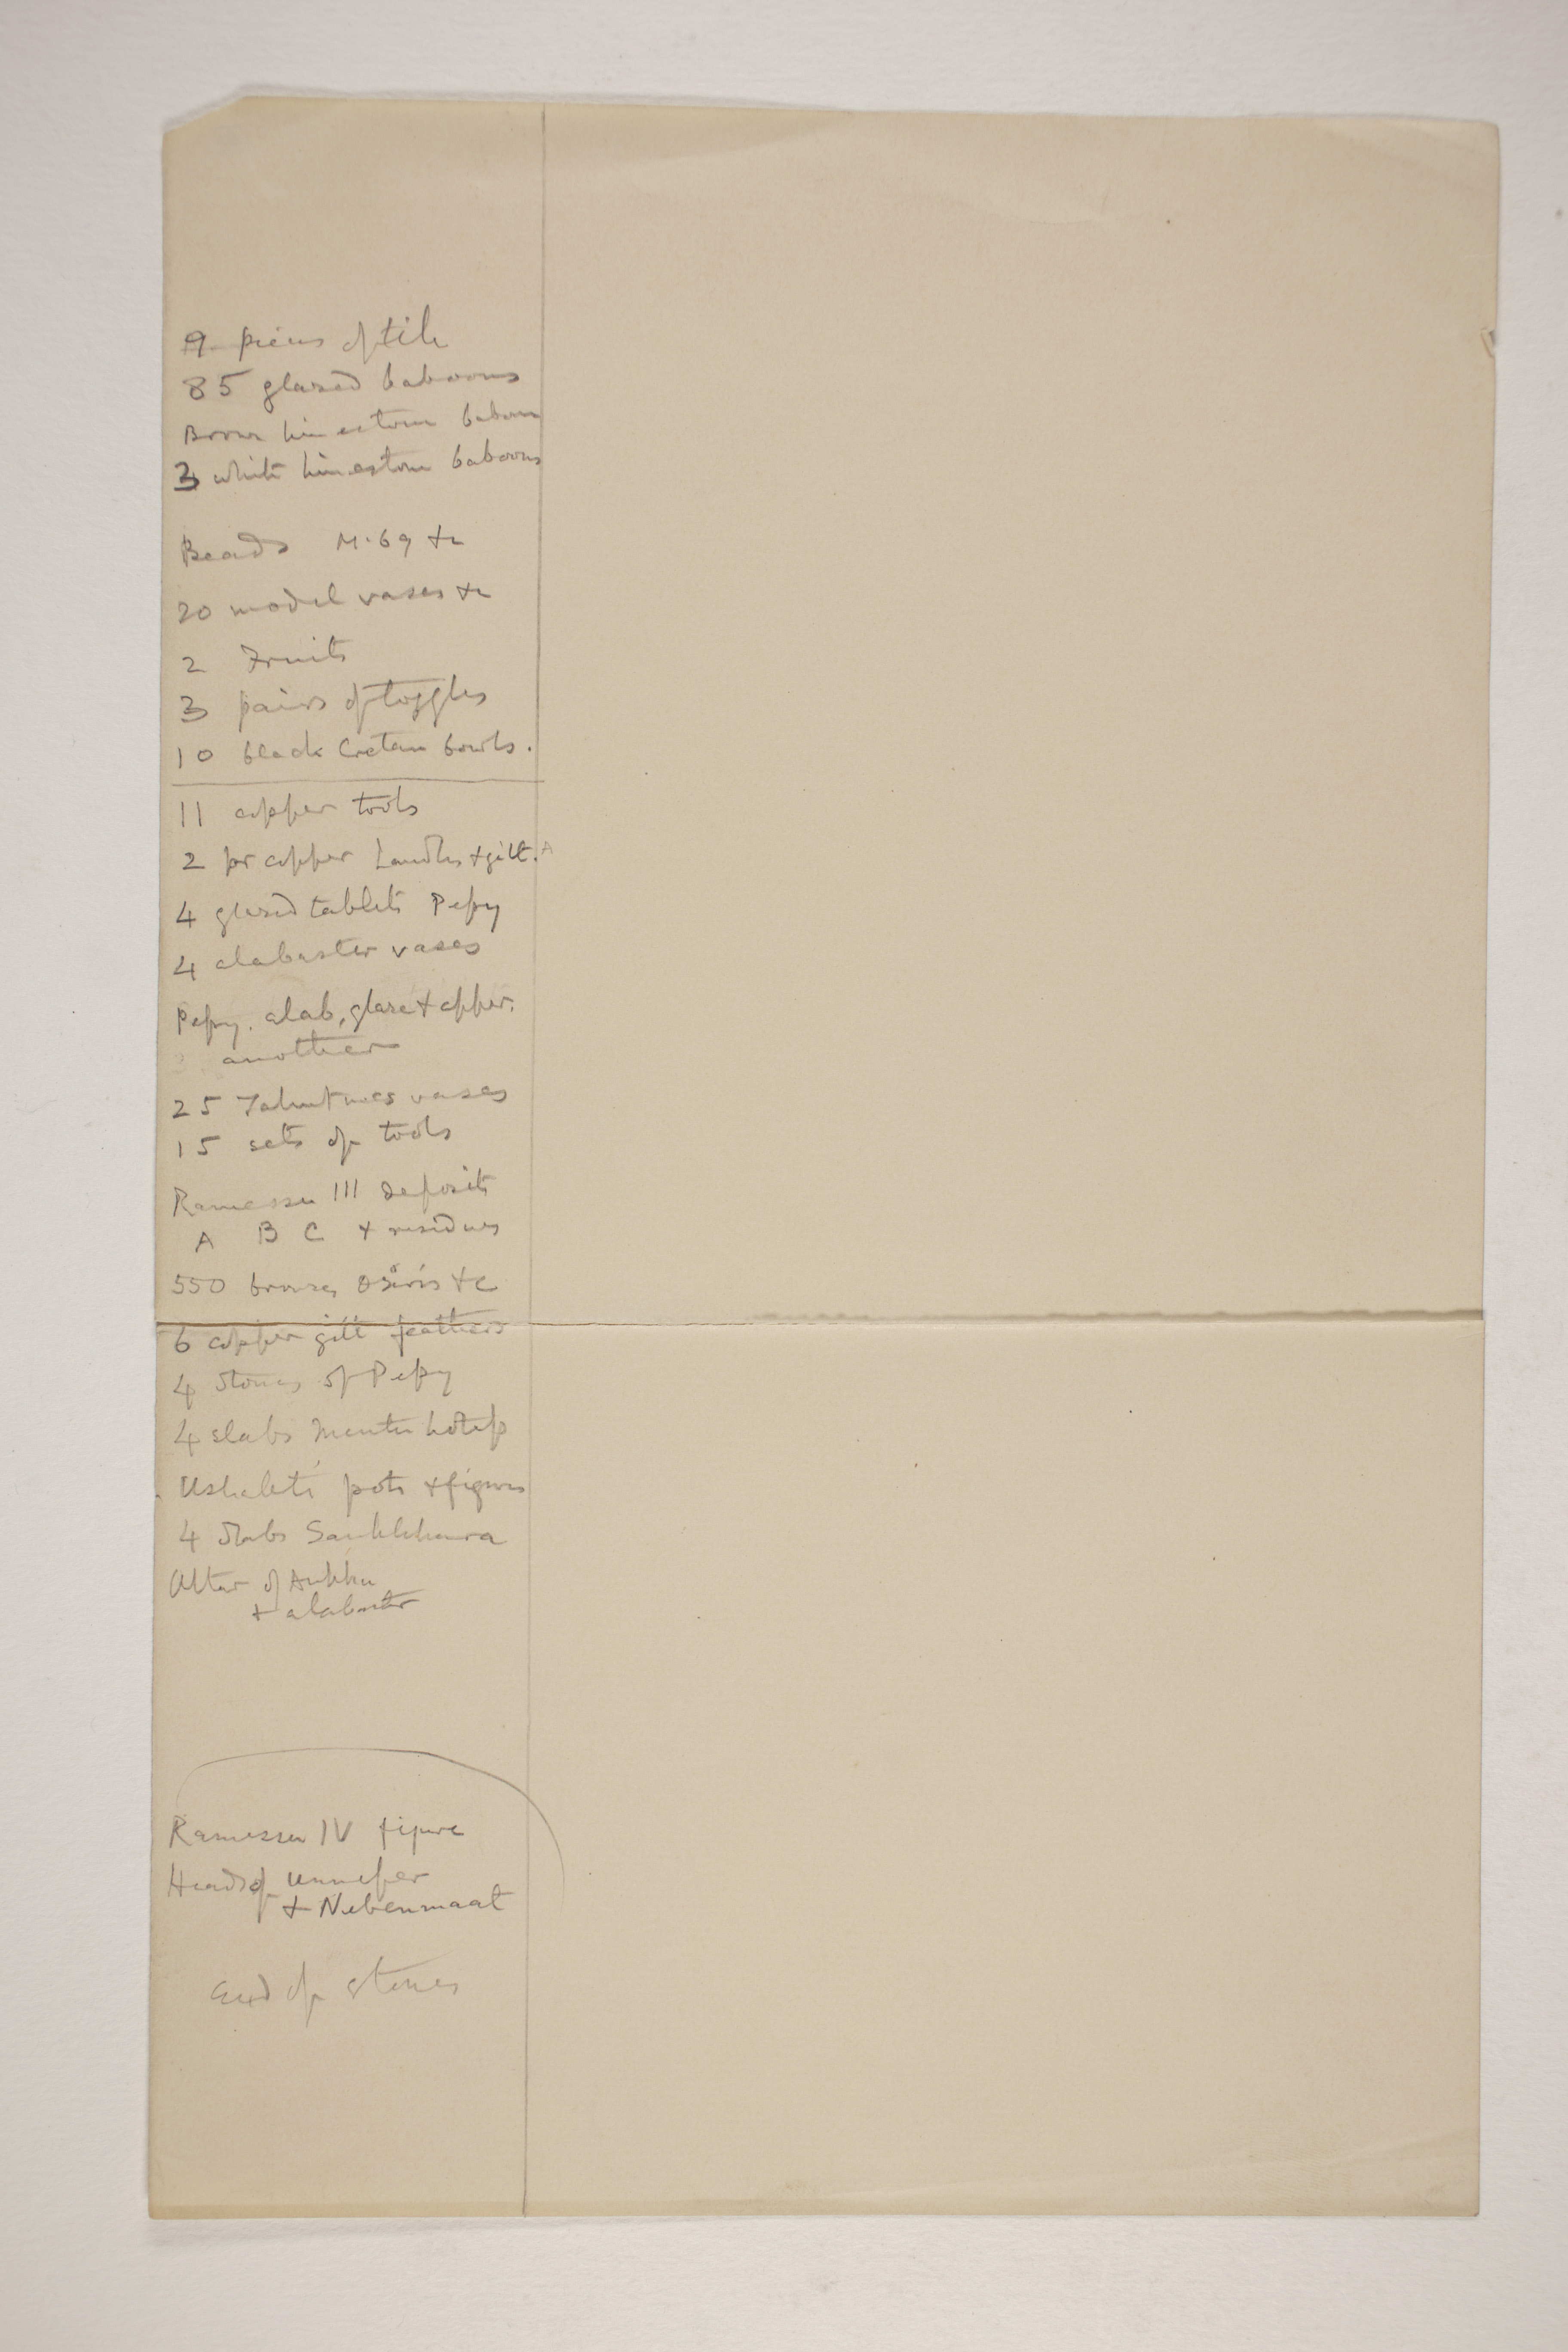 9 pieces of tile
85 glazed baboons
Brown limestone baboon
3 white limestone baboons
Beads M.69 &c
20 model vases &c
2 Fruits
3 pairs of toggles
10 black Cretan bowls.
11 copper tools
2 pr copper handles & gilt. A
4 glazed tablets Pepy
4 alabaster vases
Pepy. alab, glaze & copper.
another
25 Tahutmes vases
15 sets of tools
Ramessu III deposits
A B C & residues
550 bronzes Osiris &c
6 copper gilt feathers
4 Stones of Pepy
4 slabs Mentuhotep
Ushabti pots & figures
4 slabs Sankhkara
Altar of Ankhu
& alabaster
Ramessu IV figure
Heads of Unnefer
& Nebenmaat
End of stones